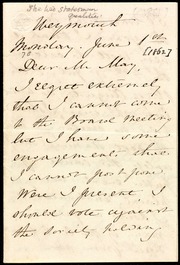 Weymouth
Monday. June 1st
[1862]
Dear Mr May,
I regret extremely
that I cannot come
to the Board meeting
but I have some
engagements that
I cannot postpone
Were I present, I
should vote against
the society holding